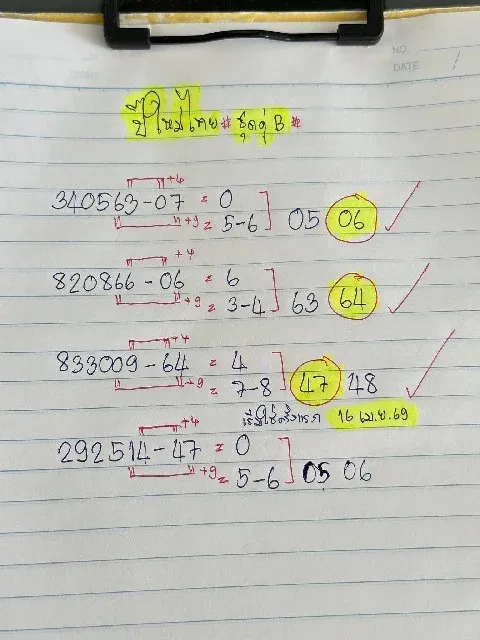 NO.
DATE
ปีใหม่ไทย # ชุดคู่ B #
+4
340563-07 = 0
+9 = 5-6 05 06
+4
820866-06 = 6
+9 = 3-4 63 64
+4
833009-64 = 4
+9 = 7-8 47 48
เริ่มใช้ครั้งแรก 16 เม.ย.69
+4
292514-47 = 0
+9 = 5-6 05 06